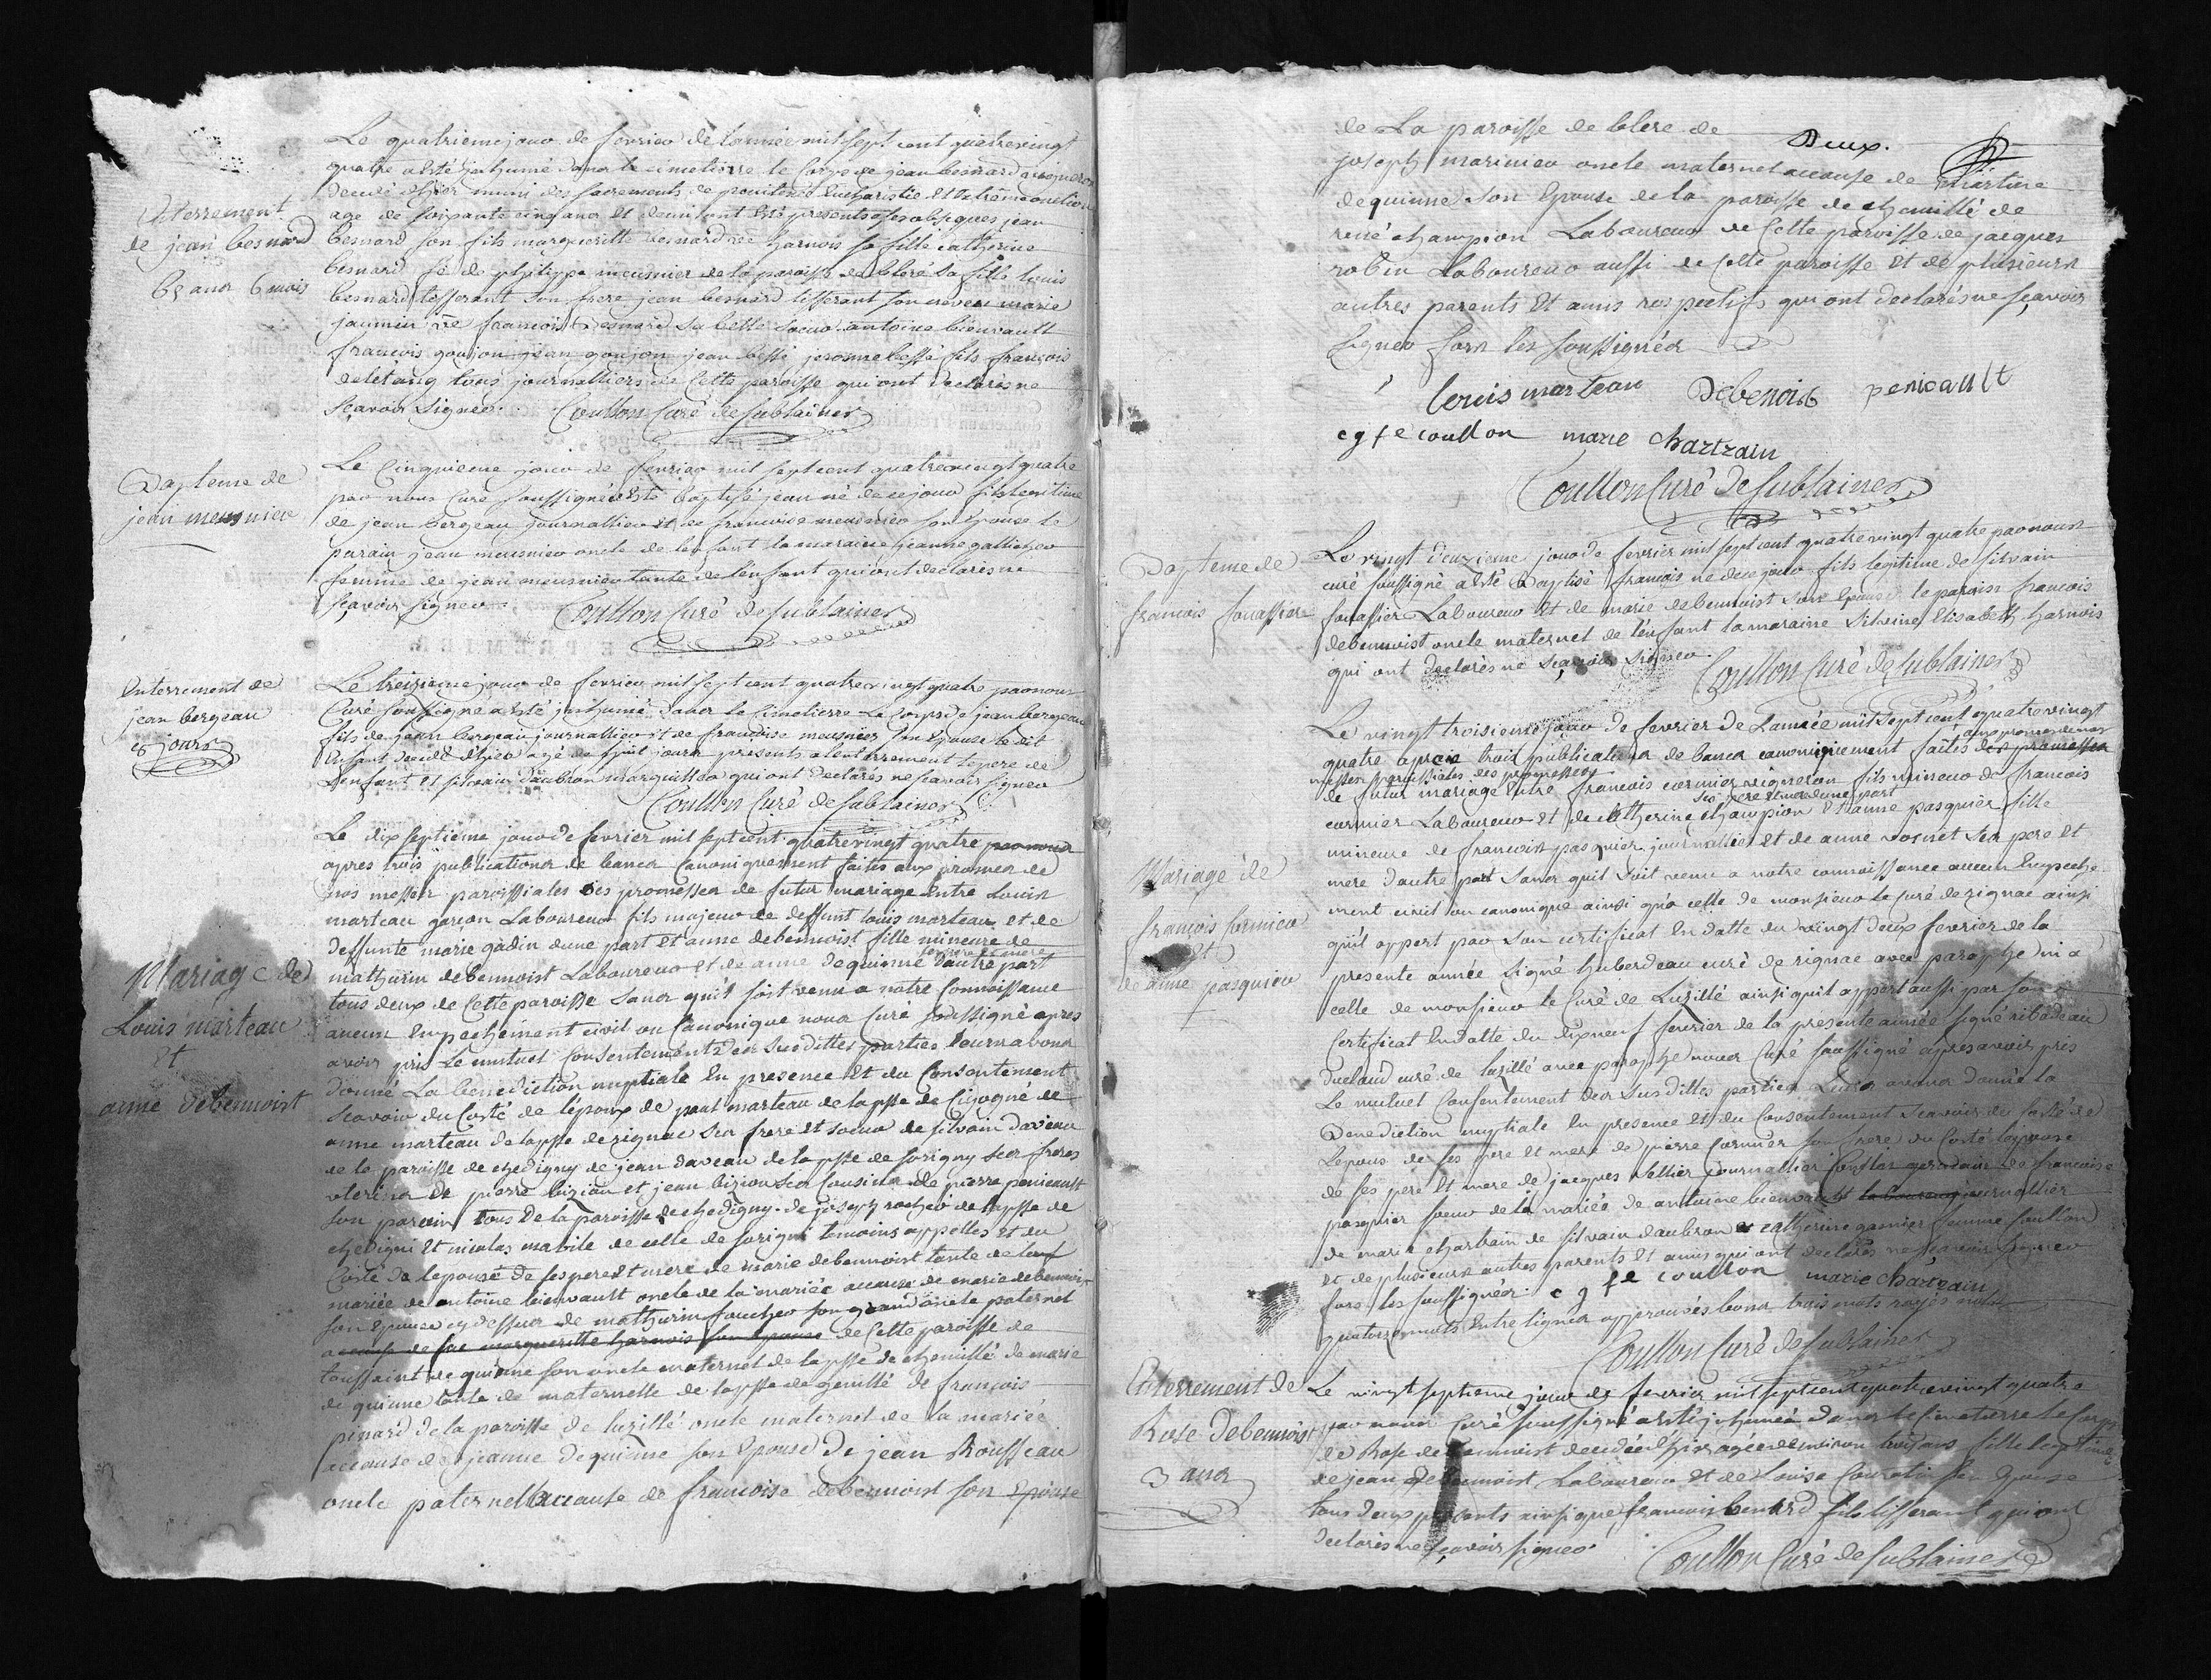 Le quatrieme jour de fevrier de l'année mil sept cent quatrevingt
quatre a esté inhumé dans le cimetierre le corps de jean besnard vigneron
decedé d'hier muni des sacrements de penitence Eucharistie et Extreme onction
agé de soixante cinq ans et demi sont esté presents a ses obseques jean
Enterrement
de jean besnard
65 ans 6 mois
besnard son fils margueritte besnard ve harnois sa fille catherine
besnard fe de philippe meusnier de la paroisse de bleré sa fille louis
besnard tisserant son frere jean besnard tisserant son neveu marie
jaumier ve francois besnard sa belle soeur antoine bienvault
francois goujon jean goujon jean bessé jerome bessé fils francois
deletang tous journalliers de cette paroisse qui ont declarés ne
sçavoir signer. Coullon Curé de Sublaines
Bapteme de
jean meusnier
Le Cinquieme jour de fevrier mil sept cent quatrevingt quatre
par nous Curé soussigné a esté baptisé jean né de ce jour fils legitime
de jean bergeau journallier et de francoise meusnier son epouse le
parain jean meusnier oncle de l'enfant la maraine jeanne gallicher
femme de jean meusnier tante de l'enfant qui ont declarés ne
sçavoir signer. Coullon Curé de Sublaines
Enterrement de
jean bergeau
8 jours
Le treizieme jour de fevrier mil sept cent quatrevingt quatre par nous
Curé soussigné a esté inhumé dans le Cimetierre le Corps de jean bergeau
fils de jean bergeau journallier et de francoise meusnier son Epouse le dit
Enfant decedé d'hier agé de huit jours presents a l'enterrement le pere de
l'enfant et silvain daubron marguillier qui ont declarés ne scavoir signer
Coullon Curé de Sublaines
Le dix septieme jour de fevrier mil sept cent quatrevingt quatre par nous
apres trois publications de bancs Canoniquement faites aux prones de
nos messes paroissiales des promesses de futur mariage entre Louis
marteau garcon Laboureur fils majeur de deffunt louis marteau et de
deffunte marie gadin dune part et anne debennoist fille mineure de
Mariage de
Louis marteau
Et
anne debennoist
ses pere et mere
mathurin debennoist Laboureur et de anne dequinne d'autre part
tous deux de Cette paroisse sans quil soit venu a notre Connoissance
aucun Empechement civil ou Canonique nous Curé soussigné apres
avoir pris Le mutuel Consentement des susdittes parties Leurs avons
donné La benediction nuptiale En presence Et du Consentement
Scavoir du Costé de l'epoux de paul marteau de la psse de Cigogné de
anne marteau de la psse de zignac ses frere et soeur de silvain daveau
de la paroisse de chedigny de jean daveau de la psse de sorigny ses freres
uterins de pierre bizieau et jean bizieau ses cousins de pierre penicault
son parein tous de la paroisse de chedigny de joseph rocher de la psse de
chedigni et nicolas mabile de celle de sorigni temoins appelles et du
Costé de lepouse de ses pere et mere de marie debennoist tante de la
mariée de antoine bienvault oncle de la mariée accause de marie debennoist
son epouse cy dessus de mathurin foucher son grand oncle paternel
accause de fue margueritte harnois son epouse de Cette paroisse de
toussaint dequinne son oncle maternel de la psse de chemillé de marie
de quinne tante de maternelle de la psse de genillé de francois
penard de la paroisse de luzillé oncle maternel de la mariée
accause de jeanne dequinne son Epouse de jean Rousseau
oncle paternel accause de francoise debennoist son Epouse
de La paroisse de blere de
Deux.
joseph marinier oncle maternel accause de Martine
dequinne son Epouse de la paroisse de chemillé de
rené champion Laboureur de Cette paroisse de jacques
robin Laboureur aussi de Cette paroisse et de plusieurs
autres parents Et amis respectifs qui ont declarés ne sçavoir
signer fors les soussignés
louis marteau Debenoist penicault
c g f e coullon marie chartrain
Coullon Curé de Sublaines
Bapteme de
francois fouassier
Le vingt deuzieme jour de fevrier mil sept cent quatre vingt quatre par nous
curé soussigné a esté Baptisé francois né de ce jour fils legitime de silvain
fouassier Laboureur et de marie debennoist son epouse le parain francois
debennoist oncle maternel de l'enfant la maraine silveine Elisabeth harnois
qui ont declarés ne sçavoir signer. Coullon Curé de Sublaines
Le vingt troisieme jour de fevrier de L'année mil sept cent quatre vingt
aux prones de nos
quatre apres trois publications de bancs canoniquement faites des promesses
messes paroissiales des promesses
de futur mariage entre francois cormier vigneron fils mineur de francois
ses pere et mere dune part
cormier Laboureur et de Catherine champion Et anne pasquier fille
mineure de francois pasquier journallier et de anne vosnet ses pere et
mere dautre part sans quil soit venu a notre connoissance aucun Empeche
Mariage de
françois Cormier
Et
de anne pasquier
ment civil ou canonique ainsi qu'a celle de monsieur le curé de zignac ainsi
qu'il appert par son certificat En datte du vingt deux fevrier de la
presente année signé huberdeau curé de zignac avec paraphe ni a
celle de monsieur le Curé de Luzillé ainsi quil appert aussi par son
Certificat En datte du dixneuf fevrier de la presente année signé ribadeau
duclaud curé de luzillé avec paraphe nous Curé soussigné apres avoir pris
Le mutuel Consentement des susdittes parties Leurs avons donné la
Benediction nuptiale En presence et du Consentement Scavoir du Costé de
Lepoux de ses pere et mere de pierre Cormier son frere du Costé lepouse
de ses pere et mere de jacques sellier journallier cousin germain de francoise
pasquier soeur de la mariée de antoine bienvault laboureur journallier
de marie chartrain de silvain daubron et catherine garnier femme Coullon
et de plusieurs autres parents et amis qui ont declarés ne scavoir signer
fors les soussignés c g f e coullon marie chartrain
quatorze mots Entre lignes approuvés bons trois mots rayés nuls
Coullon Curé de Sublaines
Enterrement de
Rose Debennoist
3 ans
Le vingt septieme jour de fevrier mil sept cent quatrevingt quatre
par nous Curé soussigné a esté inhumée dans le Cimetierre le Corps
de Rose debennoist decedée d'hier agée denviron trois ans fille legitime
de jean debennoist Laboureur et de Louise Couratin son Epouse
tous deux presents ainsi que francois benard fils tisserant qui ont
declarés ne sçavoir signer. Coullon Curé de Sublaines